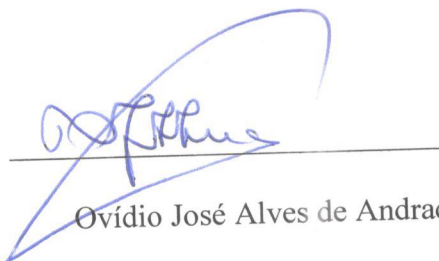 Ovídio José Alves de Andrad